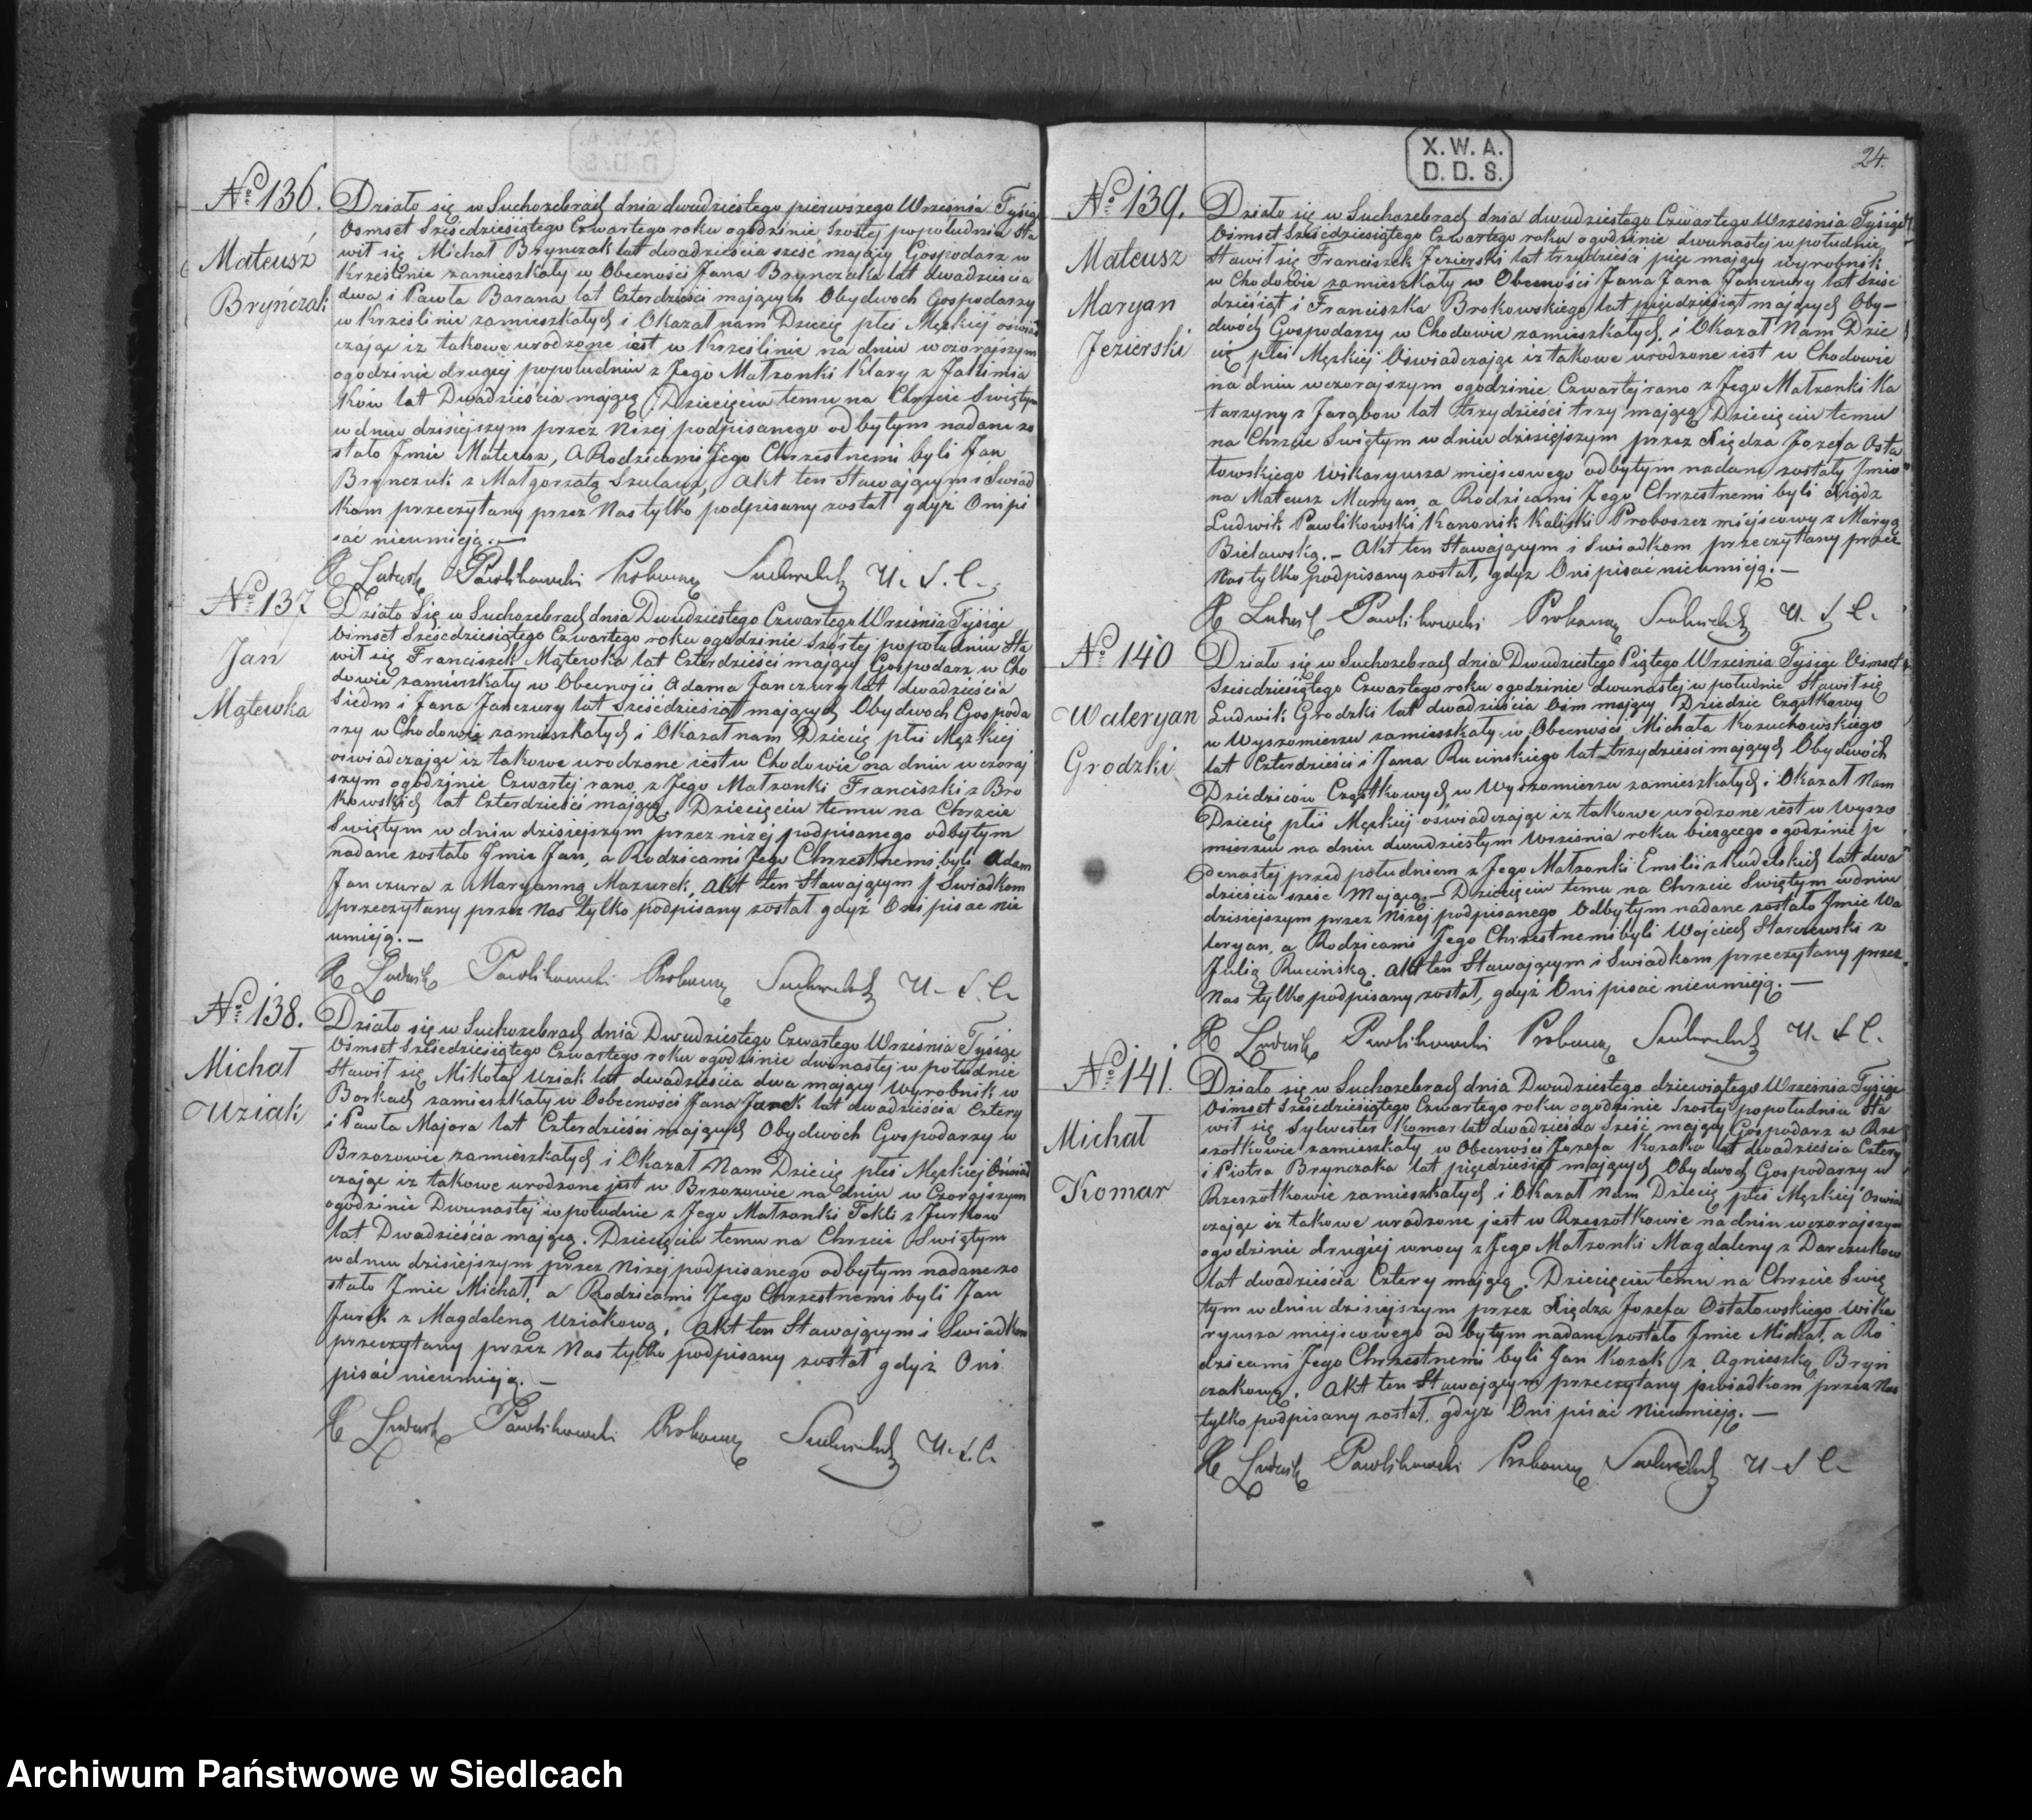 No 136.
Mateusz
Bryńczak
Działo się w Suchozebrach dnia dwudziestego pierwszego Września Tysiąc
Ośmset Sześćdziesiątego Czwartego roku o godzinie szostej popołudniu Sta
wił się Michał Brynczak lat dwadzieścia sześć mający Gospodarz w
Krześlinie zamieszkały w Obecności Jana Brynczaka lat dwadzieścia
dwa i Pawła Barana lat Czterdzieści mających Obydwoch Gospodarzy
w Krześlinie zamieszkałych i Okazał nam Dziecię płci Męzkiej oświad
czając iż takowe urodzone iest w Krześlinie na dniu wczorajszym
ogodzinie drugiej popołudniu z Jego Małżonki Klary z
ków lat Dwadzieścia mającej. Dziecięciu temu na Chrzcie Swiętym
w dniu dzisiejszym przez Niżej podpisanego odbytym nadane zo
stało Jmie Mateusz, a Rodzicami Jego Chrzestnemi byli Jan
Brynczuk z Małgorzatą Szulawą, Akt ten Stawającym i Swiad
kom przeczytany przez Nas tylko podpisany został gdyż Oni pi
sać nieumieją.—
X Ludwik Pawlikowski Proboszcz Suchozebrski U. S. C.
No 137
Jan
Mątewka
Działo Się w Suchozebrach dnia Dwudziestego Czwartego Września Tysiąc
Ośmset Sześćdziesiątego Czwartego roku ogodzinie Szóstej popołudniu Sta
wił się Franciszek Mątewka lat Czterdzieści mający Gospodarz w Cho
dowie zamieszkały w Obecności Adama Janczury lat dwadzieścia
Siedm i Jana Janczury lat Sześćdziesiąt mających Obydwoch Gospoda
rzy w Chodowie zamieszkałych i Okazał nam Dziecię płci Męzkiej
oswiadczając iż takowe urodzone iest w Chodowie na dniu wczoraj
szym ogodzinie Czwartej rano z Jego Małżonki Franciszki z Bro
kowskich lat Czterdzieści mającej. Dziecięciu temu na Chrzcie
Swiętym w dniu dzisiejszym przez niżej podpisanego odbytym
nadane zostało Jmie Jan, a Rodzicami Jego Chrzestnemi byli Adam
Janczura z Maryanną Mazurek. Akt ten Stawającym i Swiadkom
przeczytany przez Nas tylko podpisany został gdyż Oni pisac nie
umieją.—
X Ludwik Pawlikowski Proboszcz Suchozebrski U. S. C.
No 138.
Michał
Uziak
Działo się w Suchozebrach dnia Dwudziestego Czwartego Września Tysiąc
Ośmset Sześćdziesiątego Czwartego roku ogodzinie dwunastej w południe
Stawił się Mikołaj Uziak lat dwadzieścia dwa mający Wyrobnik w
Borkach zamieszkały w Obecności Jana Jurek lat dwadzieścia Cztery
i Pawła Majora lat Czterdzieści mających Obydwóch Gospodarzy w
Brzozowie zamieszkałych i Okazał Nam Dziecię płci Męzkiej Oświad
czając iż takowe urodzone jest w Brzozowie na dniu w Czorajszym
ogodzinie Dwunastej w południe z Jego Małżonki Tekli z Jurków
lat Dwadzieścia mającej. Dziecięciu temu na Chrzcie Swiętym
w dniu dzisiejszym przez Niżej podpisanego odbytym nadane zo
stało Jmie Michał, a Rodzicami Jego Chrzestnemi byli Jan
Jurek z Magdaleną Uziakową, Akt ten Stawającym i Swiadkom
przeczytany przez Nas tylko podpisany został gdyż Oni
pisać nieumieją.—
X Ludwik Pawlikowski Proboszcz Suchozebrski U. S. C.
X. W. A.
D. D. S.
24.
No 139.
Mateusz
Maryan
Jezierski
Działo się w Suchozebrach dnia dwudziestego Czwartego Września Tysiąc
Ośmset Sześćdziesiątego Czwartego roku ogodzinie dwunastej w południe
Stawił się Franciszek Jezierski lat trzydzieści pięc mający wyrobnik
w Chodowie zamieszkały w Obecności Jana Jana Janczury lat Sześć
dziesiąt i Franciszka Brokowskiego lat pięcdziesiąt mających Oby-
dwóch Gospodarzy w Chodowie zamieszkałych, i Okazał Nam Dzie
cię płci Męzkiej Oświadczając iz takowe urodzone iest w Chodowie
na dniu wczorajszym ogodzinie Czwartej rano z Jego Małżonki Ka
tarzyny z Jarąbow lat trzydzieści trzy mającej Dziecięciu temu
na Chrzcie Swiętym w dniu dzisiejszym przez Xiędza Jozefa Osta
łowskiego Wikaryusza miejscowego odbytym nadane zostały Jmio
na Mateusz Maryan, a Rodzicami Jego Chrzestnemi byli Xiądz
Ludwik Pawlikowski Kanonik Kaliski Proboszcz miejscowy z Maryą
Bielawską.- Akt ten Stawającym i Swiadkom przeczytany przez
Nas tylko podpisany został, gdyż Oni pisac nieumieją.—
X Ludwik Pawlikowski Proboszcz Suchozebrski U. S. C.
No 140
Waleryan
Grodzki
Działo się w Suchozebrach dnia Dwudziestego Piątego Września Tysiąc Ośmset
Sześćdziesiątego Czwartego roku ogodzinie dwunastej w południe Stawił się
Ludwik Grodzki lat dwadzieścia Ośm mający Dziedzic Cząstkowy
w Wyszomierzu zamieszkały w Obecności Michała Kozuchowskiego
lat Czterdzieści i Jana Rucinskiego lat trzydzieści mających Obydwóch
Dziedziców Cząstkowych w Wyszomierzu zamieszkałych i Okazał Nam
Dziecię płci Męzkiej oświadczając iz takowe urodzone iest w Wyszo
mierzu na dniu dwudziestym Września roku bieżącego ogodzinie je
denastej przed południem z Jego Małżonki Emilii z Kudelskich lat dwa
dzieścia sześć Mającej.— Dziecięciu temu na Chrzcie Swiętym w dniu
dzisiejszym przez Niżej podpisanego Odbytym nadane zostało Jmie Wa
leryan, a Rodzicami Jego Chrzestnemi byli Wojciech Starczewski z
Julią Rucińską. Akt ten Stawającym i Swiadkom przeczytany przez
Nas tylko podpisany został, gdyż Oni pisać nieumieją.—
X Ludwik Pawlikowski Proboszcz Suchozebrski U. S. C.
No 141.
Michał
Komar
Działo się w Suchozebrach dnia Dwudziestego dziewiątego Września Tysiąc
Ośmset Sześćdziesiątego Czwartego roku ogodzinie Szostej popołudniu Sta
wił się Sylwester Komar lat dwadzieścia Sześć mający Gospodarz w Rze
szotkowie zamieszkały w Obecności Jozefa Kozaka lat dwadzieścia Cztery
i Piotra Brynczaka lat pięcdziesiąt mających Obydwoch Gospodarzy w
Rzeszotkowie zamieszkałych i Okazał Nam Dziecię płci Męzkiej Oswiad
czając iz takowe urodzone jest w Rzeszotkowie na dniu wczorajszym
ogodzinie drugiej wnocy z Jego Małżonki Magdaleny z Darczukow
lat dwadzieścia Cztery mającej. Dziecięciu temu na Chrzcie Swię
tym w dniu dzisiejszym przez Xiędza Jozefa Ostałowskiego Wika
ryusza miejscowego odbytym nadane zostało Jmie Michał, a Ro
dzicami Jego Chrzestnemi byli Jan Kozak z Agnieszką Bryn
czakową. Akt ten Stawającym przeczytany swiadkom przez Nas
tylko podpisany został, gdyż Oni pisać Nieumieją.—
X Ludwik Pawlikowski Proboszcz Suchozebrski U. S. C.
Archiwum Państwowe w Siedlcach